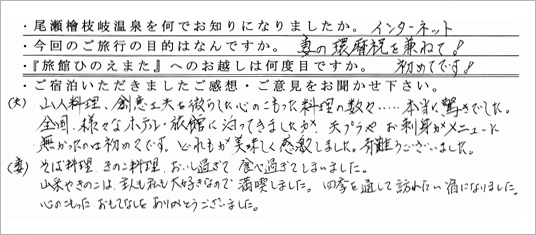 ・尾瀬檜枝岐温泉を何でお知りになりましたか。インターネット
・今回のご旅行の目的はなんですか。妻の還暦祝を兼ねて!
・『旅館ひのえまた』へのお越しは何度目ですか。初めてです!
・ご宿泊いただきましたご感想・ご意見をお聞かせ下さい。
(夫) 山人料理、創意工夫を後うした心のこもった料理の数々……本当に驚きでした。
全国、様々なホテル・旅館に泊ってきましたが、天プラやお刺身がメニューに
無かったのは初めてです。どれもが美味しく感激しました。有難うございました。
(妻) そば料理、きのこ料理、おいし過ぎて食べ過ぎてしまいました。
山菜やきのこは、主人も私も大好きなので満喫しました。四季を通して訪れたい宿になりました。
心のこもったおもてなしをありがとうございました。